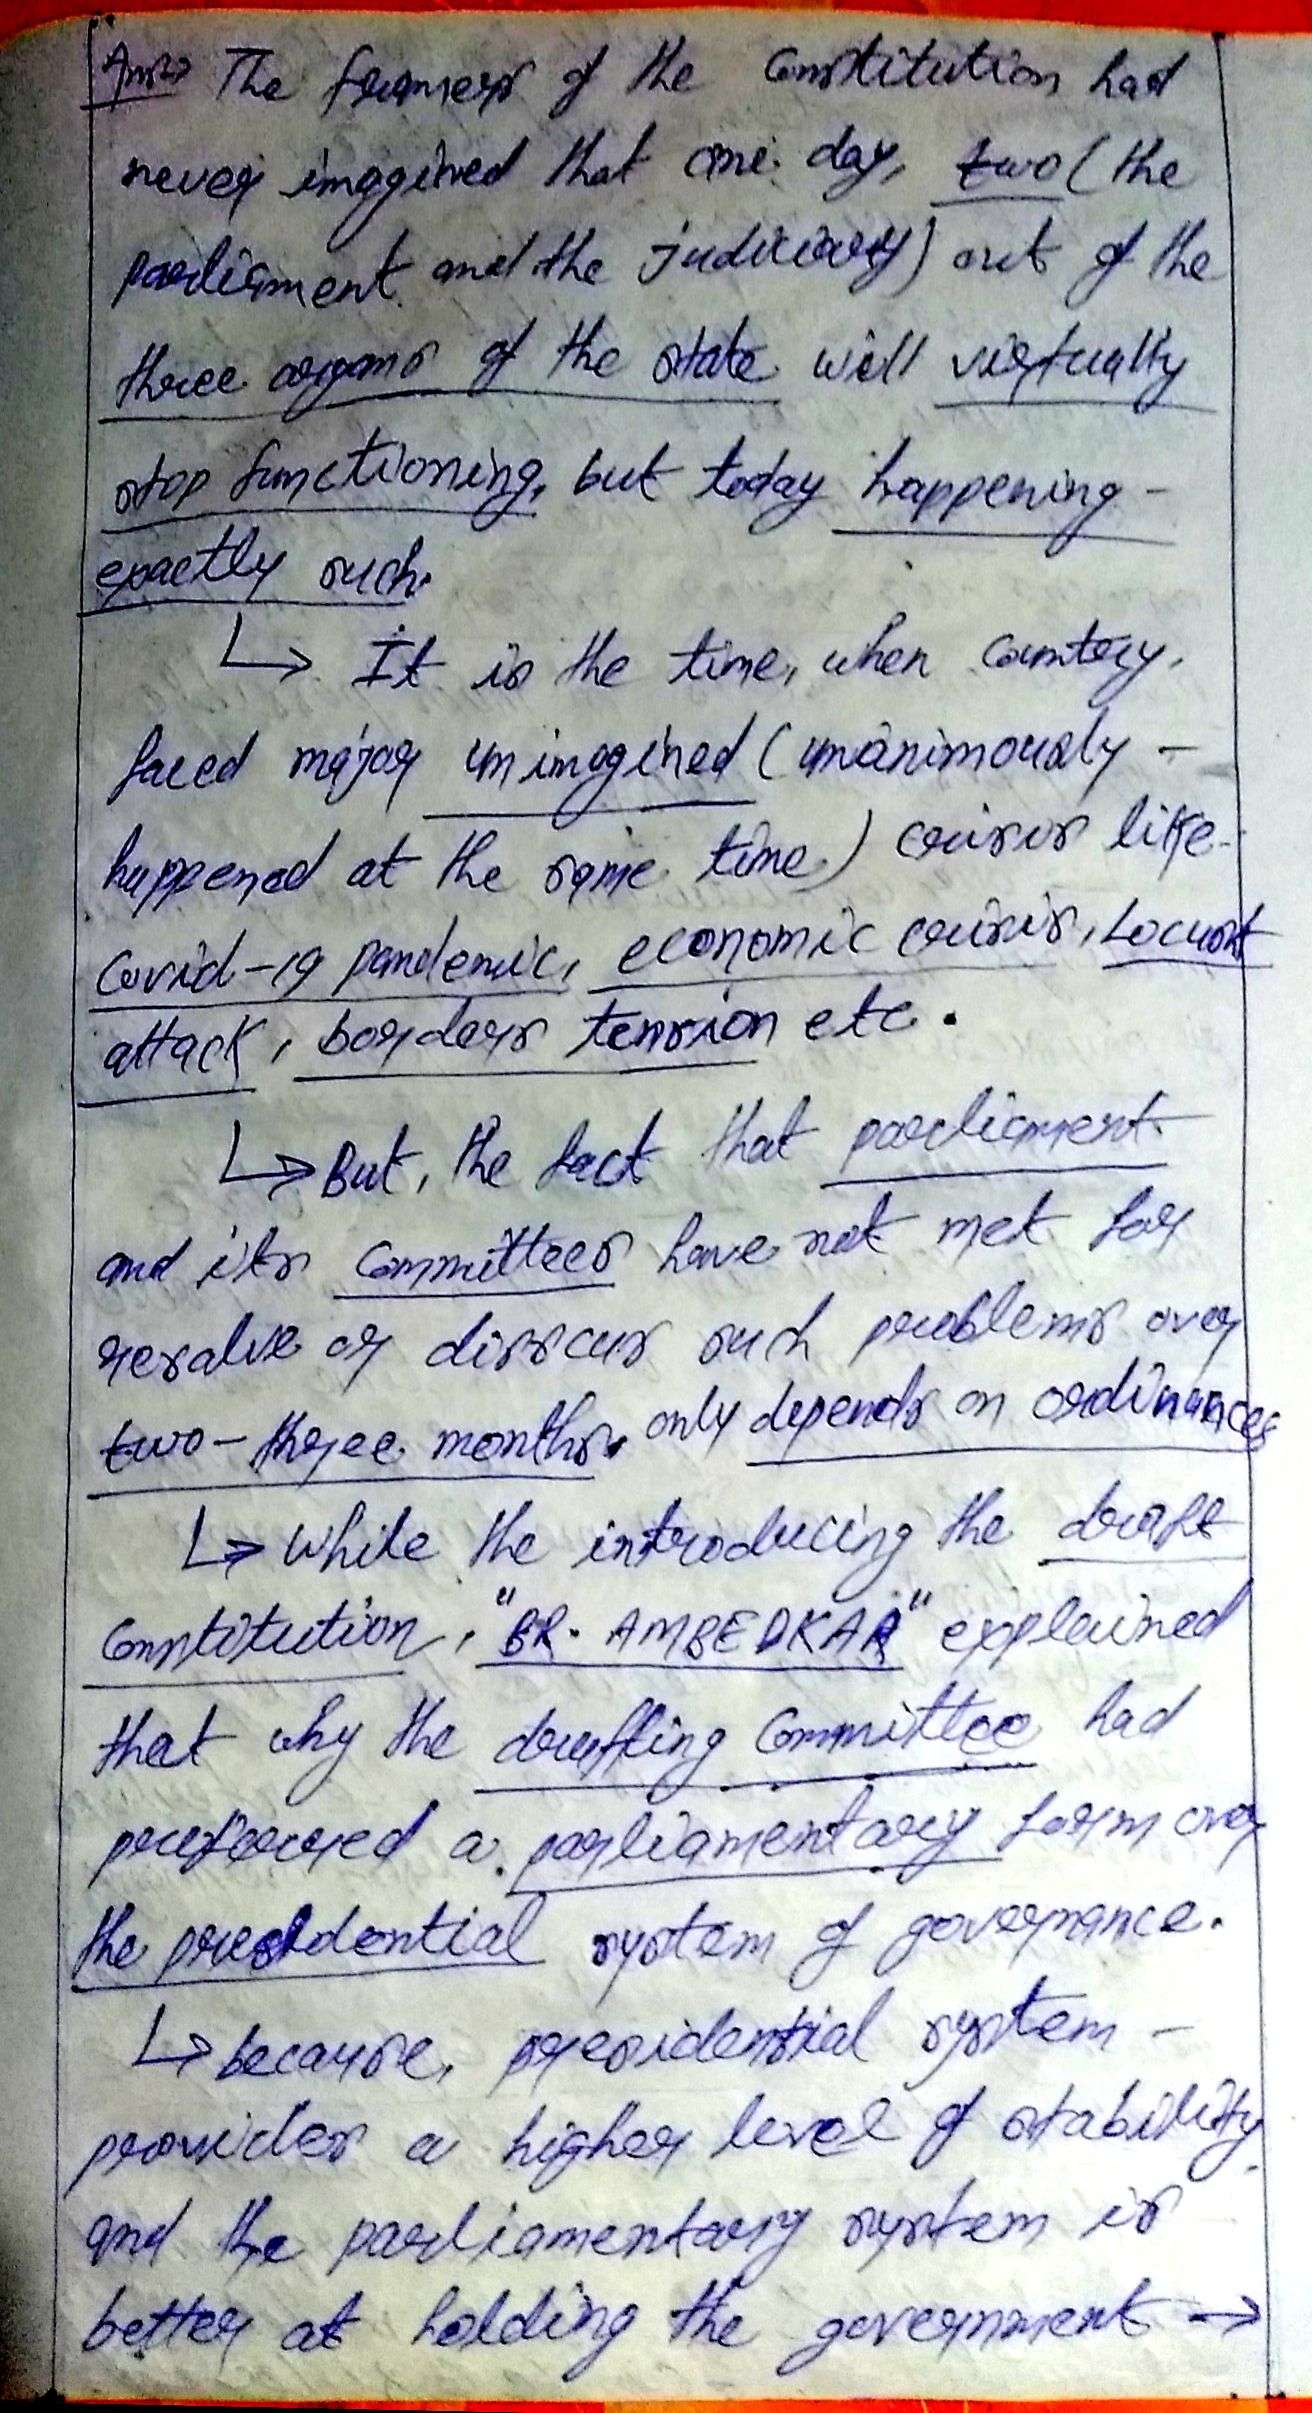 Ans→ The framers of the Constitution had
never imagined that one day, two (the
parliament and the judiciary) out of the
three organs of the state will virtually
stop functioning, but today happening -
exactly such.
↳ It is the time, when country,
faced major unimagined (unanimously -
happened at the same time) crisis like -
Covid-19 pandemic, economic crisis, Locust
attack, borders tension etc.
↳ But, the fact that parliament
and its committees have not met for
resolve or disscus such problems over
two-three months. only depends on ordinances
↳ While the introducing the draft
Constitution, "BR. AMBEDKAR" explained
that why the drafting Committee had
preferred a parliamentary form over
the presidential system of governance.
↳ because, presidential system -
provides a higher level of stability,
and the parliamentary system is
better at holding the government →